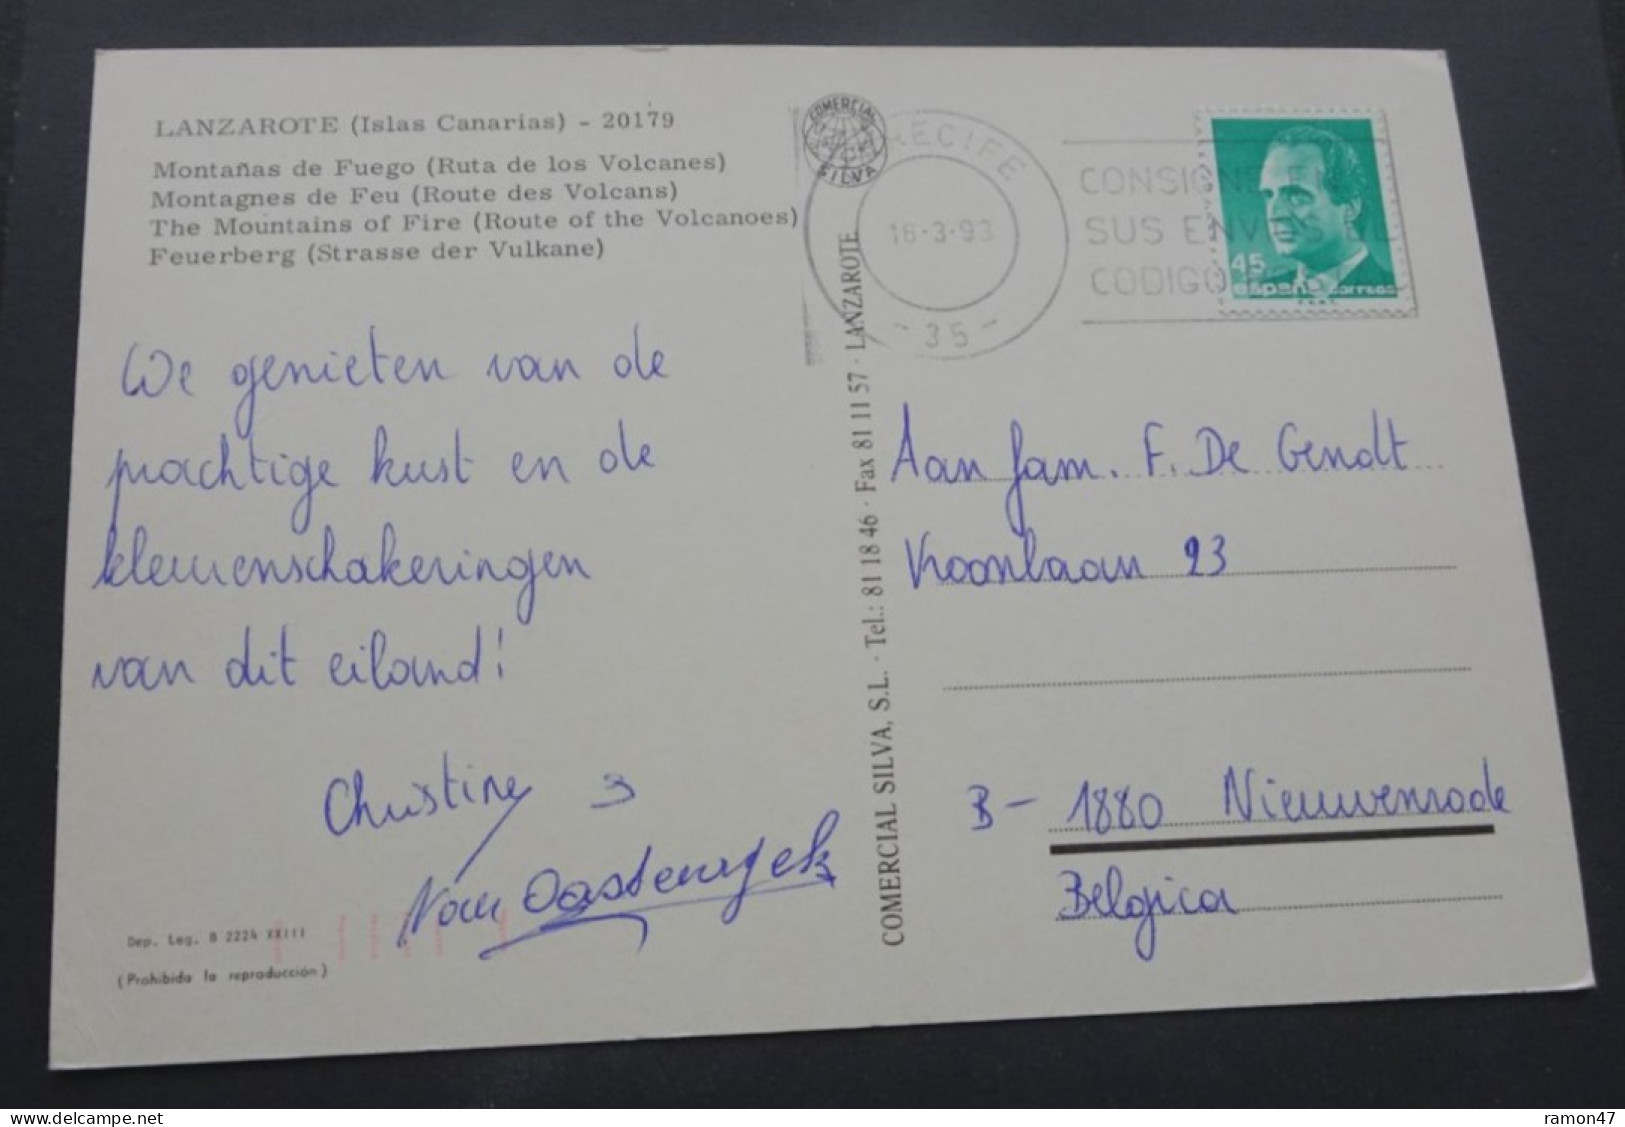 LANZAROTE (Islas Canarias) - 20179
Montañas de Fuego (Ruta de los Volcanes)
Montagnes de Feu (Route des Volcans)
The Mountains of Fire (Route of the Volcanoes)
Feuerberg (Strasse der Vulkane)
We genieten van de
prachtige kust en de
kleurenschakeringen
van dit eiland!
Christine
Van Oostenryck
Dep. Leg. B 2224 XXIII
(Prohibida la reproducción)
COMERCIAL
SILVA
COMERCIAL SILVA, S.L. · Tel.: 81 18 46 · Fax 81 11 57 · LANZAROTE
RECIFE
16-3-93
- 35 -
CONSIGNE
SUS ENVIOS EL
CODIGO
45
españa correos
Aan fam. F. De Gendt
Kroonlaan 23
B - 1880 Nieuwenrode
Belgica
ramon47
delcampe.net